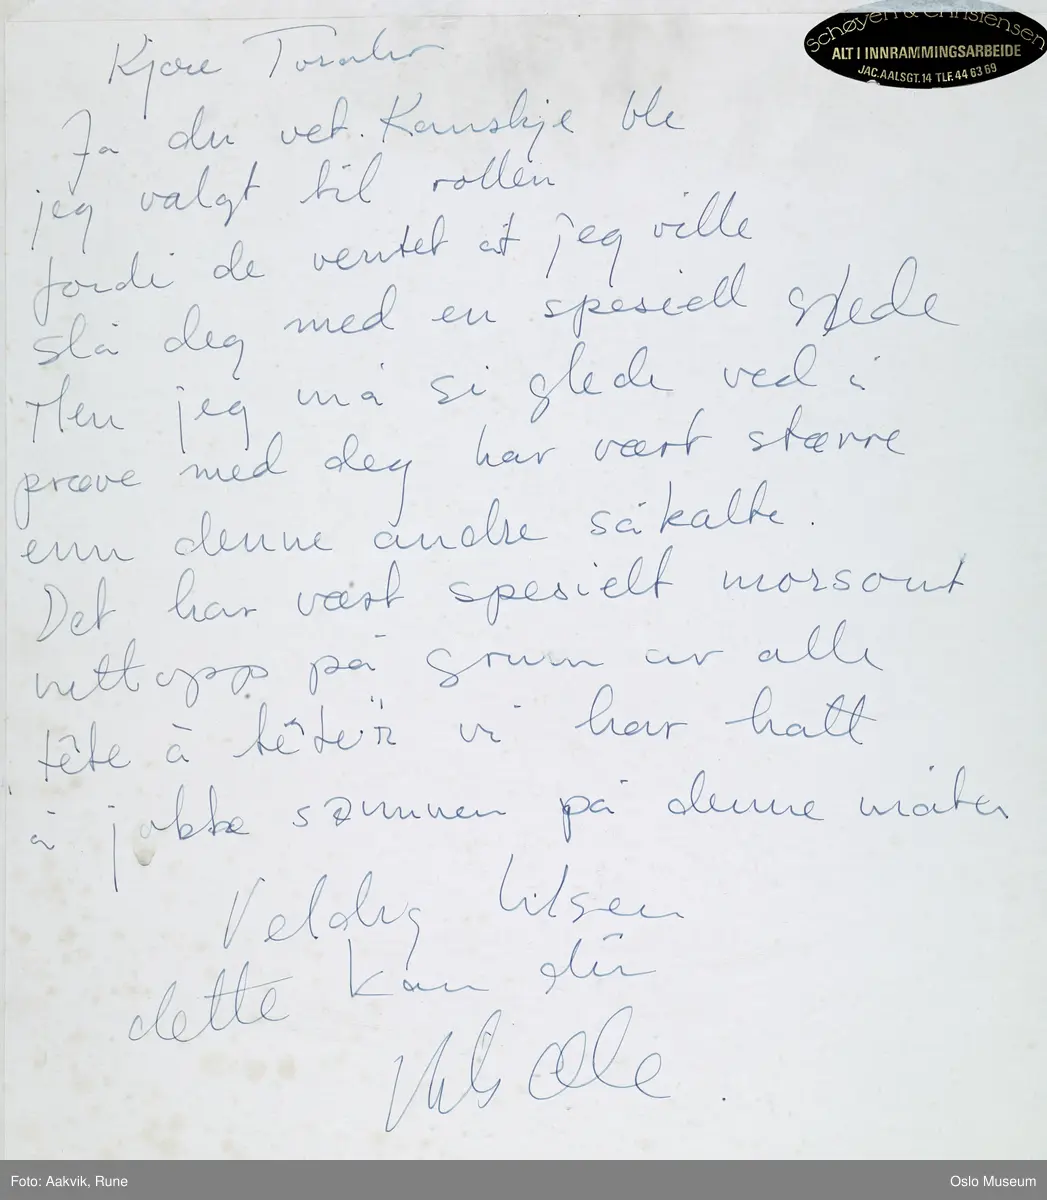 Schøyen & Christensen
ALT I INNRAMMINGSARBEIDE
JAC. AALSGT. 14 TLF. 44 63 69
Kjære Toralv
Ja du vet. Kanskje ble
jeg valgt til rollen
fordi de ventet at jeg ville
slå deg med en spesiell glede
Men jeg må si glede ved å
prøve med deg har vært større
enn denne andre såkalte.
Det har vært spesielt morsomt
nettopp på grunn av alle
tête à tête'r vi har hatt
å jobbe sammen på denne måten
Veldig hilsen
dette kan din
Nils Ole
Foto: Aakvik, Rune
Oslo Museum